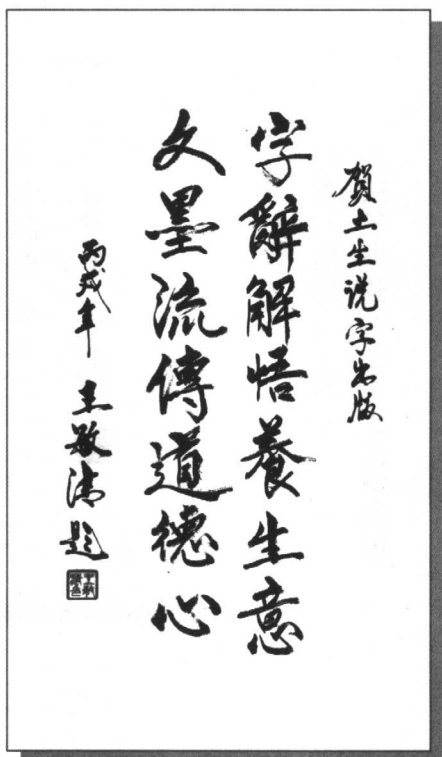 賀土生说字出版
字辭解悟養生意
文墨流傳道德心
丙戌年 王敏清題